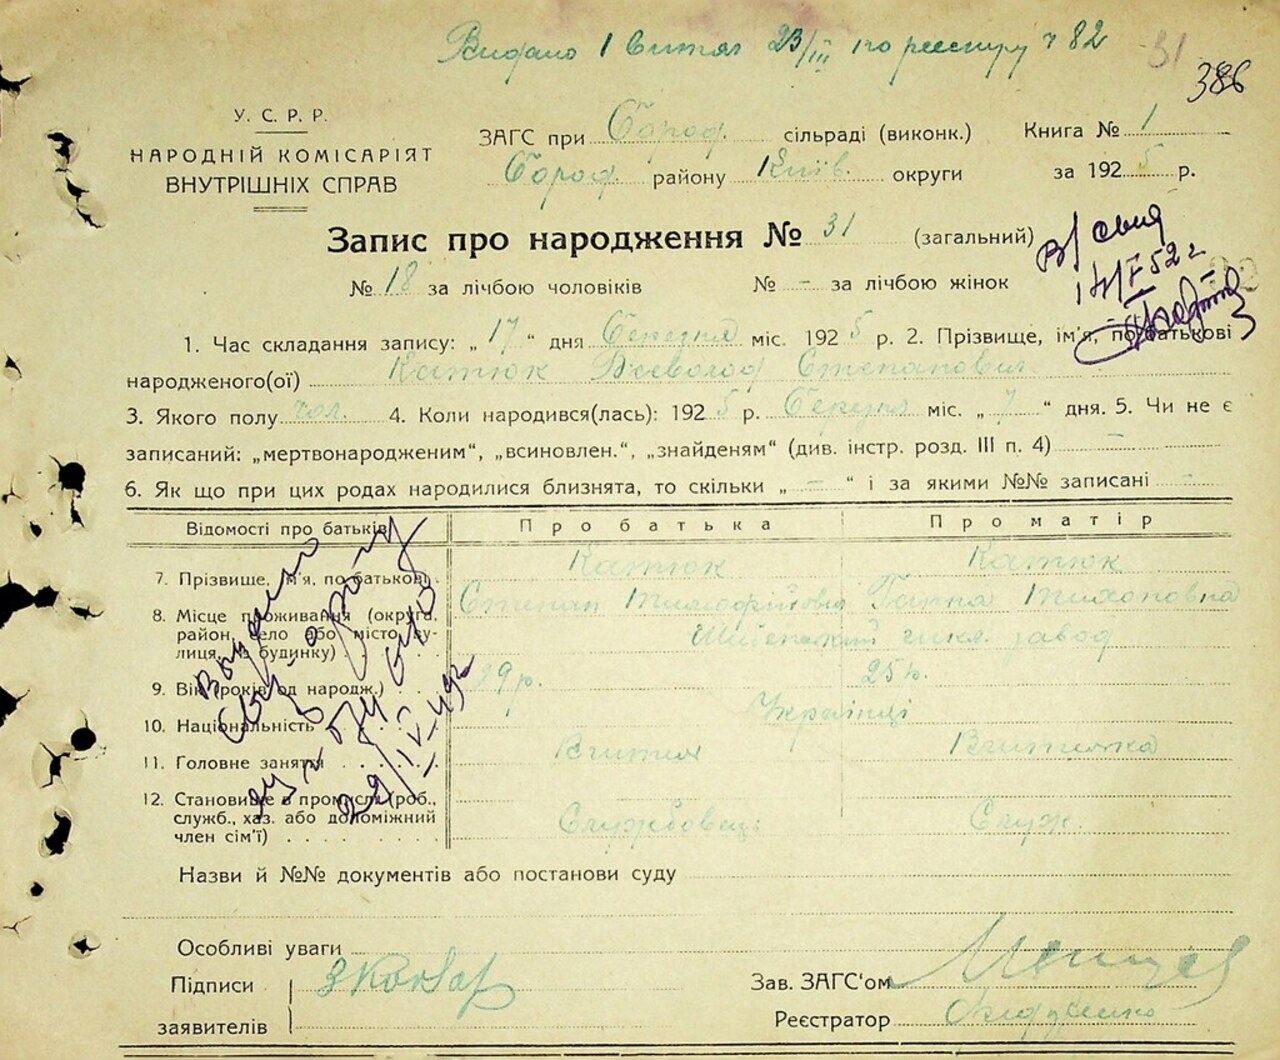 Видано 1 витяг 23/III по реєстру ч 82
31
386
У. С. Р. Р.
НАРОДНІЙ КОМІСАРІЯТ
ВНУТРІШНІХ СПРАВ
ЗАГС при Город. сільраді (виконк.) Книга № 1
Город. району Київ. округи за 1925 р.
Запис про народження № 31 (загальний)
№ 18 за лічбою чоловіків № - за лічбою жінок
14/V 52 г
1. Час складання запису: „17“ дня Березня міс. 1925 р. 2. Прізвище, ім'я, по батькові
народженого(ої) Катюк Всеволод Степанович
3. Якого полу чол. 4. Коли народився(лась): 1925 р. Березня міс. „7“ дня. 5. Чи не є
записаний: „мертвонародженим“, „всиновлен.“, „знайденям“ (див. інстр. розд. III п. 4) -
6. Як що при цих родах народилися близнята, то скільки „-“ і за якими №№ записані -
Відомості про батьків Про батька Про матір
7. Прізвище, ім'я, по батькові Катюк Катюк
Степан Тимофійович Ганна Тихоновна
8. Місце проживання (округа,
район, село або місто, ву-
лиця, № будинку) завод
9. Вік (років од народж.) 29 р. 25 р.
10. Національність Українці
11. Головне заняття Вчитель Вчителька
12. Становище в промислі (роб.,
служб., хаз. або допоміжний
член сім'ї) Службовець Служ.
29/IV-49г
Назви й №№ документів або постанови суду
Особливі уваги
Підписи
заявителів
Зав. ЗАГС'ом
Реєстратор